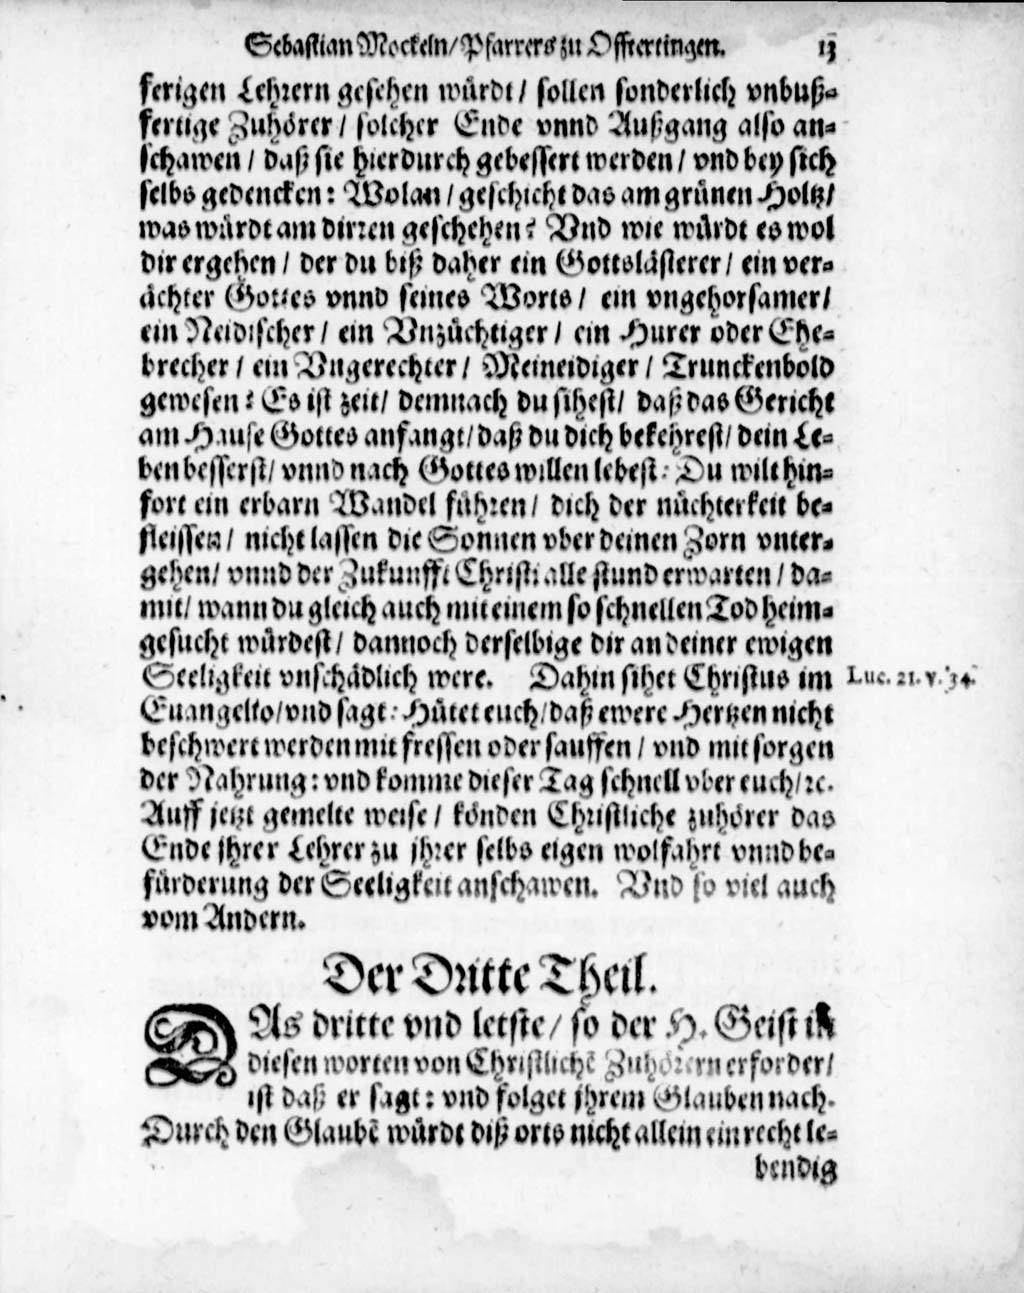 Sebastian Mockeln/Pfarrers zu Offtertingen. 13
ferigen Lehrern gesehen wuͤrdt / sollen sonderlich vnbuß-
fertige Zuhoͤrer / solcher Ende vnnd Außgang also an-
schawen / daß sie hierdurch gebessert werden / vnd bey sich
selbs gedencken: Wolan / geschicht das am gruͤnen Holtz/
was wuͤrdt am dirren geschehen? Vnd wie wuͤrdt es wol
dir ergehen / der du biß daher ein Gottslaͤsterer / ein ver-
aͤchter Gottes vnnd seines Worts / ein vngehorsamer/
ein Neidischer / ein Vnzuͤchtiger / ein Hurer oder Ehe-
brecher / ein Vngerechter / Meineidiger / Trunckenbold
gewesen? Es ist zeit/ demnach du sihest/ daß das Gericht
am Hause Gottes anfangt/ daß du dich bekehrest/ dein Le-
ben besserst/ vnnd nach Gottes willen lebest: Du wilt hin-
fort ein erbarn Wandel fuͤhren/ dich der nuͤchterkeit be-
fleissen/ nicht lassen die Sonnen vber deinen Zorn vnter-
gehen/ vnnd der Zukunfft Christi alle stund erwarten / da-
mit/ wann du gleich auch mit einem so schnellen Tod heim-
gesucht wuͤrdest/ dannoch derselbige dir an deiner ewigen
Seeligkeit vnschaͤdlich were. Dahin sihet Christus im
Luc. 21. v. 34.
Euangelio/vnd sagt: Huͤtet euch/daß ewere Hertzen nicht
beschwert werden mit fressen oder sauffen / vnd mit sorgen
der Nahrung: vnd komme dieser Tag schnell vber euch/ꝛc.
Auff jetzt gemelte weise / koͤnden Christliche zuhoͤrer das
Ende jhrer Lehrer zu jhrer selbs eigen wolfahrt vnnd be-
fuͤrderung der Seeligkeit anschawen. Vnd so viel auch
vom Andern.
Der Dritte Theil.
DAs dritte vnd letste/ so der H. Geist in
diesen worten von Christlichẽ Zuhoͤrern erforder/
ist daß er sagt: vnd folget jhrem Glauben nach.
Durch den Glaubẽ wuͤrdt diß orts nicht allein ein recht le-
bendig